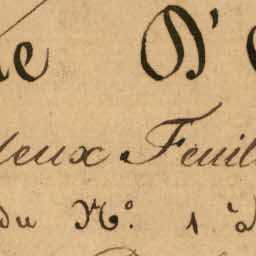 D'
deux Feuil
du N.º 1 à